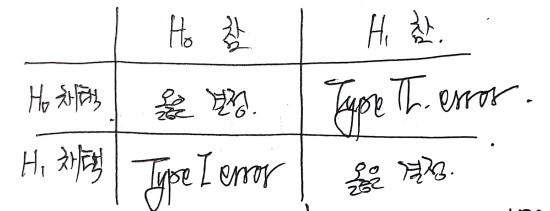 H₀ 참 H₁ 참.
H₀ 채택. 옳은 결정. Type II. error.
H₁ 채택 Type I error 옳은 결정.